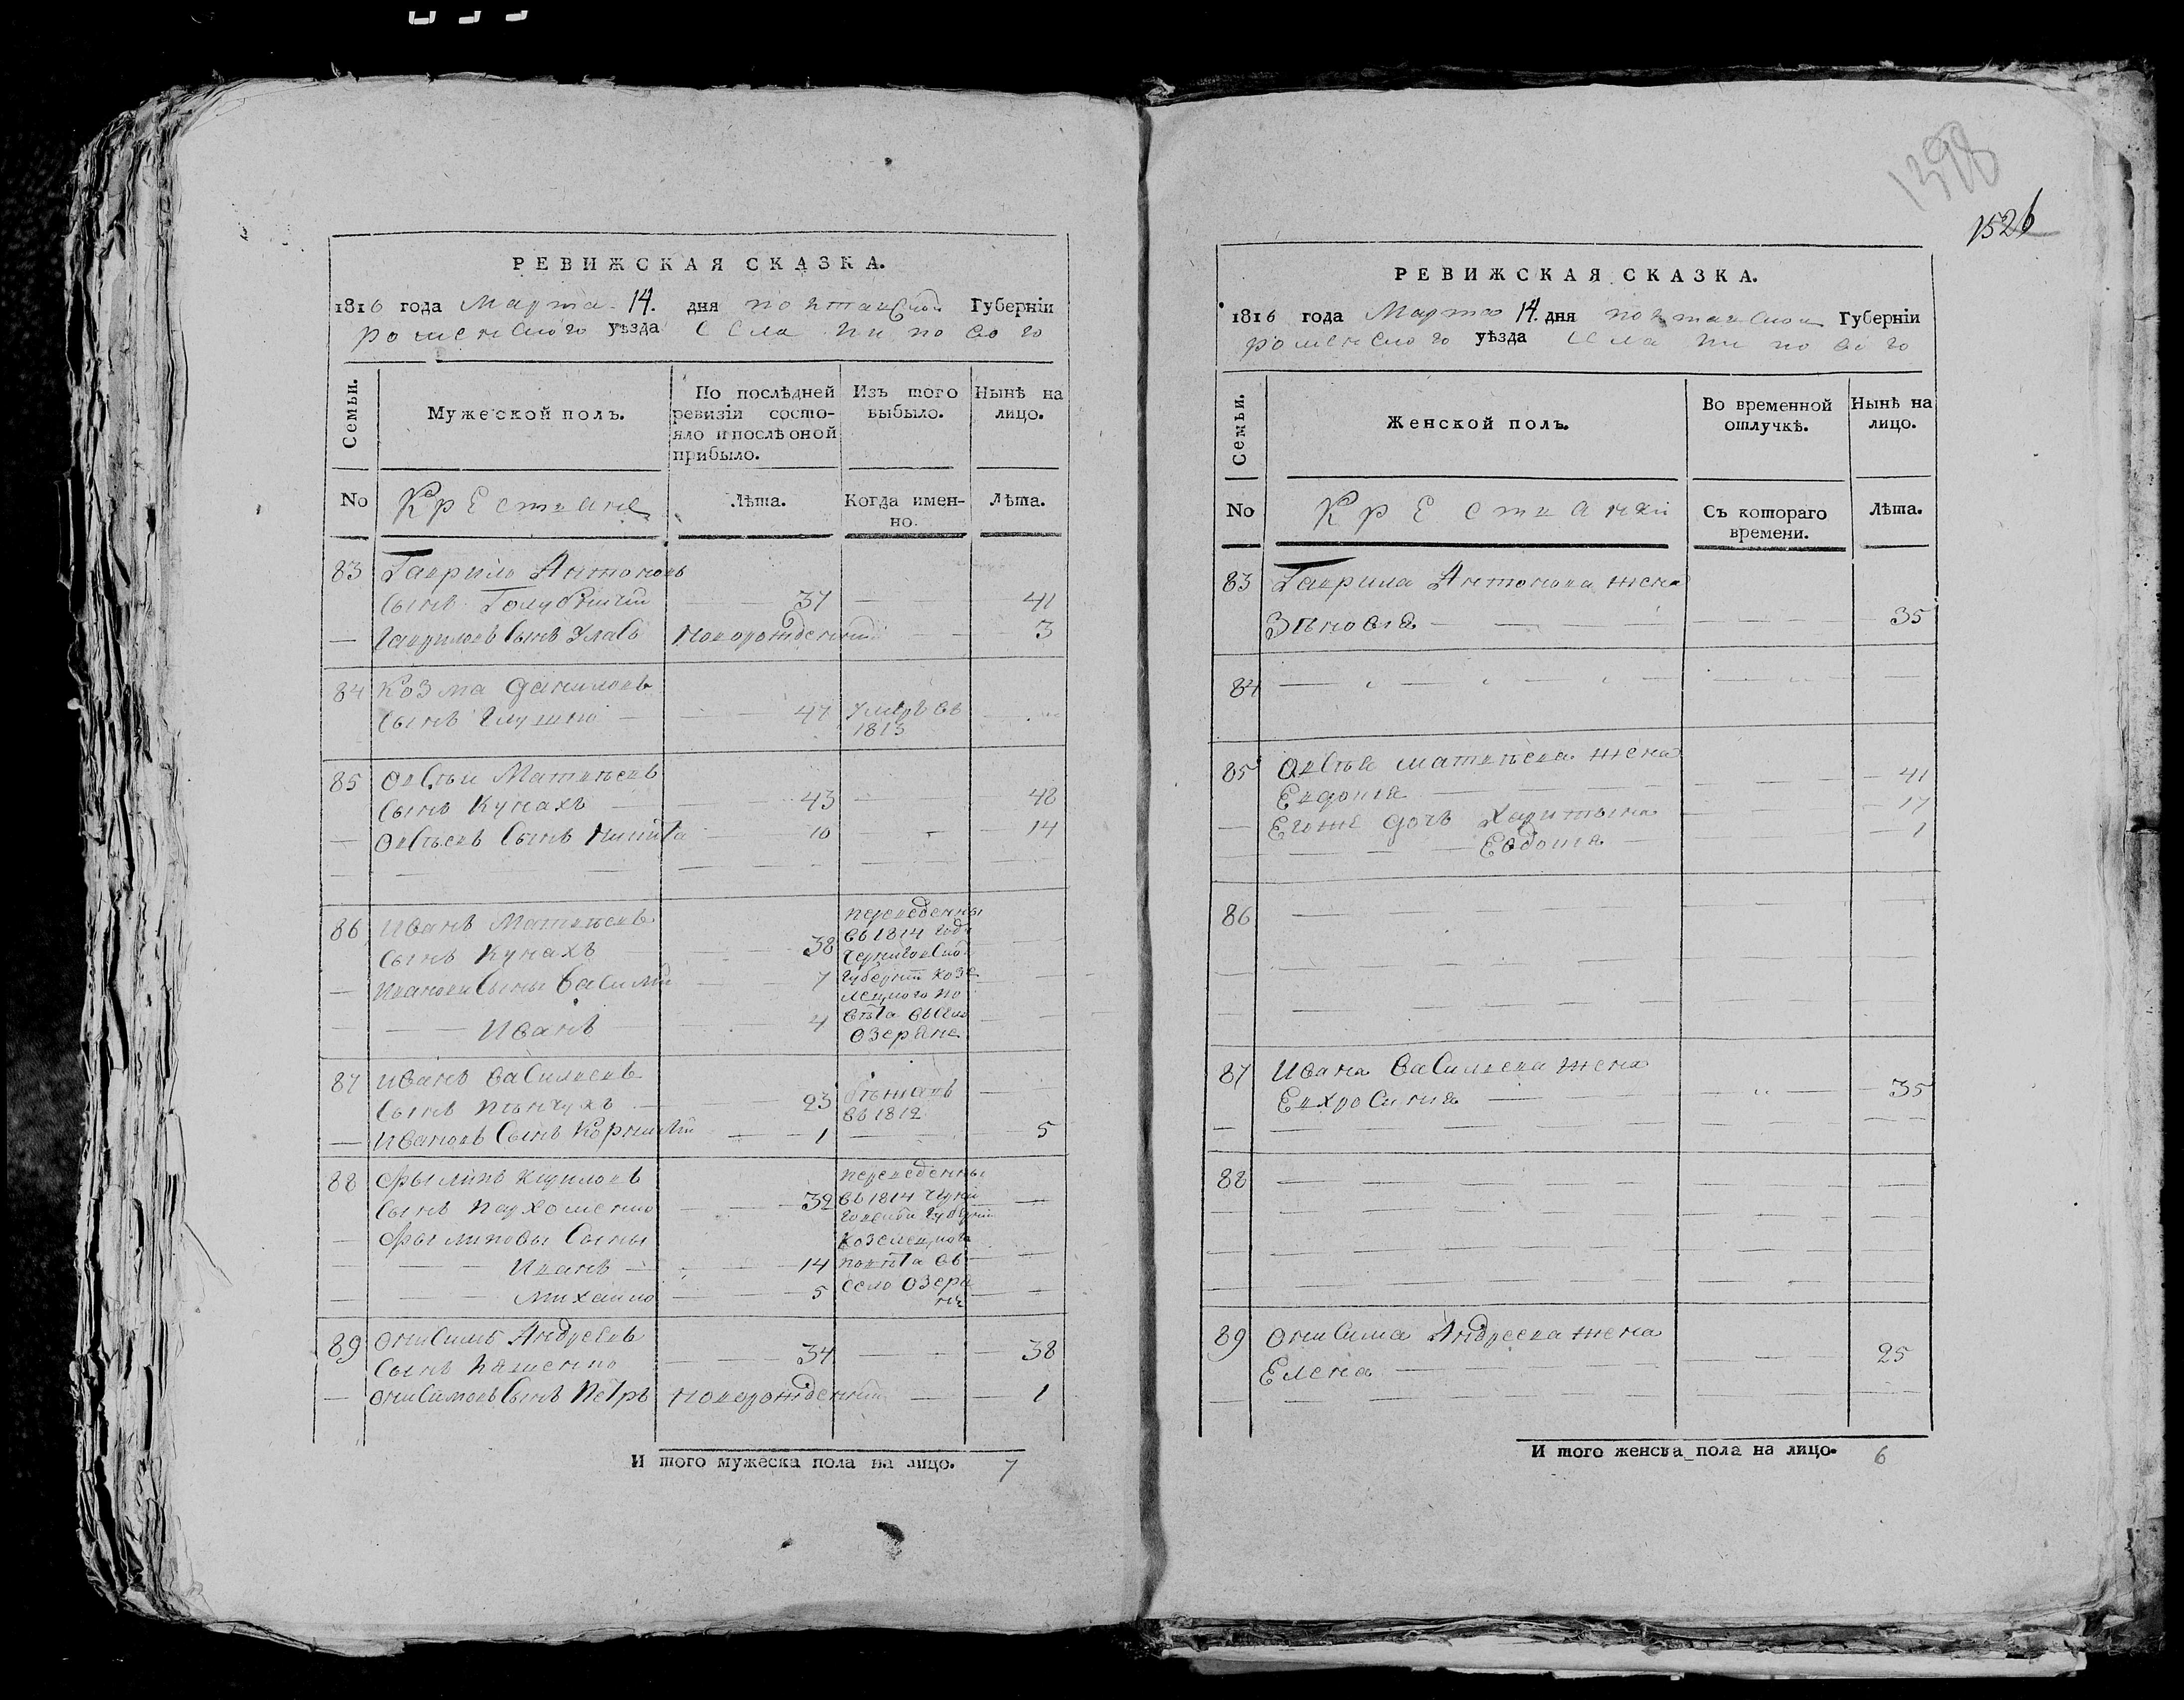 РЕВИЖСКАЯ СКАЗКА.
1816 года Марта 14. дня полтавской Губерніи
роменского уѣзда села
Семьи.
Мужеской полъ.
По послѣдней ревизіи состояло и послѣ оной прибыло.
Изъ того выбыло.
Нынѣ на лицо.
No
Крестяне
Лѣта.
Когда именно.
Лѣта.
83 Гаврило Антоновъ
сынъ Голубничій 37 41
Гавриловъ сынъ Уласъ новорожденній 3
84 Козма Даниловъ
сынъ Глушко 47 умеръ въ
1813
85 Овсѣи Матвѣевъ
сынъ Кунахъ 43 48
Овсѣевъ сынъ Никита 10 14
86 Иванъ Матвѣевъ
сынъ Кунахъ 38
Ивановы сыны Василій 7
Иванъ 4
переведенны
въ 1814 году
Черниговской
губерніи Козе
лецкого по
вѣта въ село
Озеряне
87 Иванъ Васильевъ
сынъ 23 бѣжавъ
въ 1812
Ивановъ сынъ Корнилій 1 5
88 Филипъ Кириловъ
сынъ Пархоменко 32
Филиповы сыны
Иванъ 14
Михайло 5
переведенны
въ 1814 Черни
говской губерніи
Козелецкого
повѣта въ
село Озеря
не
89 Онисимъ Андреевъ
сынъ 34 38
Онисимовъ сынъ Петръ новорожденній 1
И того мужеска пола на лицо. 7
1398
1526
РЕВИЖСКАЯ СКАЗКА.
1816 года Марта 14. дня полтавской Губерніи
роменского уѣзда села
Семьи.
Женской полъ.
Во временной отлучкѣ.
Нынѣ на лицо.
No
Крестянки
Съ котораго времени.
Лѣта.
83 Гаврила Антонова жена
Зѣновія 35
84
85 Овсѣя Матвѣева жена
Евдокія 41
Егоже дочь Харитына 17
Евдокія 1
86
87 Ивана Васильева жена
Евхросинія 35
88
89 Онисима Андреева жена
Елена 25
И того женска пола на лицо. 6